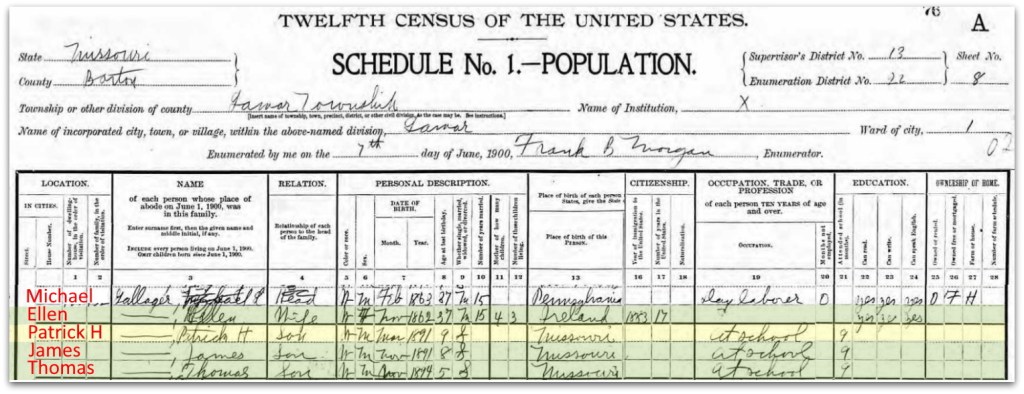 76
A
TWELFTH CENSUS OF THE UNITED STATES.
SCHEDULE No. 1.—POPULATION.
State Missouri
County Barton
Supervisor's District No. 13
Enumeration District No. 22
Sheet No.
8
Township or other division of county Lamar Township
[Insert name of township, town, precinct, district, or other civil division, as the case may be. See instructions.]
Name of Institution, X
Name of incorporated city, town, or village, within the above-named division, Lamar
Ward of city, 1
Enumerated by me on the 7th day of June, 1900, Frank B Morgan, Enumerator.
LOCATION. NAME RELATION. PERSONAL DESCRIPTION. CITIZENSHIP. OCCUPATION, TRADE, OR PROFESSION EDUCATION. OWNERSHIP OF HOME.
IN CITIES.
Street.
House Number.
Number of dwelling-house, in the order of visitation.
Number of family, in the order of visitation.
of each person whose place of abode on June 1, 1900, was in this family.
Enter surname first, then the given name and middle initial, if any.
INCLUDE every person living on June 1, 1900.
OMIT children born since June 1, 1900.
Relationship of each person to the head of the family.
Color or race.
Sex.
DATE OF BIRTH.
Month. Year.
Age at last birthday.
Whether single, married, widowed, or divorced.
Number of years married.
Mother of how many children.
Number of these children living.
Place of birth of each person
States, give the State
Place of birth of this PERSON.
Year of immigration to the United States.
Number of years in the United States.
Naturalization.
of each person TEN YEARS of age and over.
OCCUPATION.
Months not employed.
Attended school (in months).
Can read.
Can write.
Can speak English.
Owned or rented.
Owned free or mortgaged.
Farm or house.
Number of farm schedule.
1 2 3 4 5 6 7 8 9 10 11 12 13 16 17 18 19 20 21 22 23 24 25 26 27 28
Michael Gallager, Michael P Head W M Feb 1863 37 M 15 Pennsylvania day laborer 0 yes yes yes O F H
Ellen —, Ellen Wife W F Nov 1862 37 M 15 4 3 Ireland 1883 17 yes yes yes
Patrick H —, Patrick H son W M Mar 1891 9 S Missouri at school 9
James —, James Son W M Nov 1891 8 S Missouri at school 9
Thomas —, Thomas Son W M Nov 1894 5 S Missouri at school 9